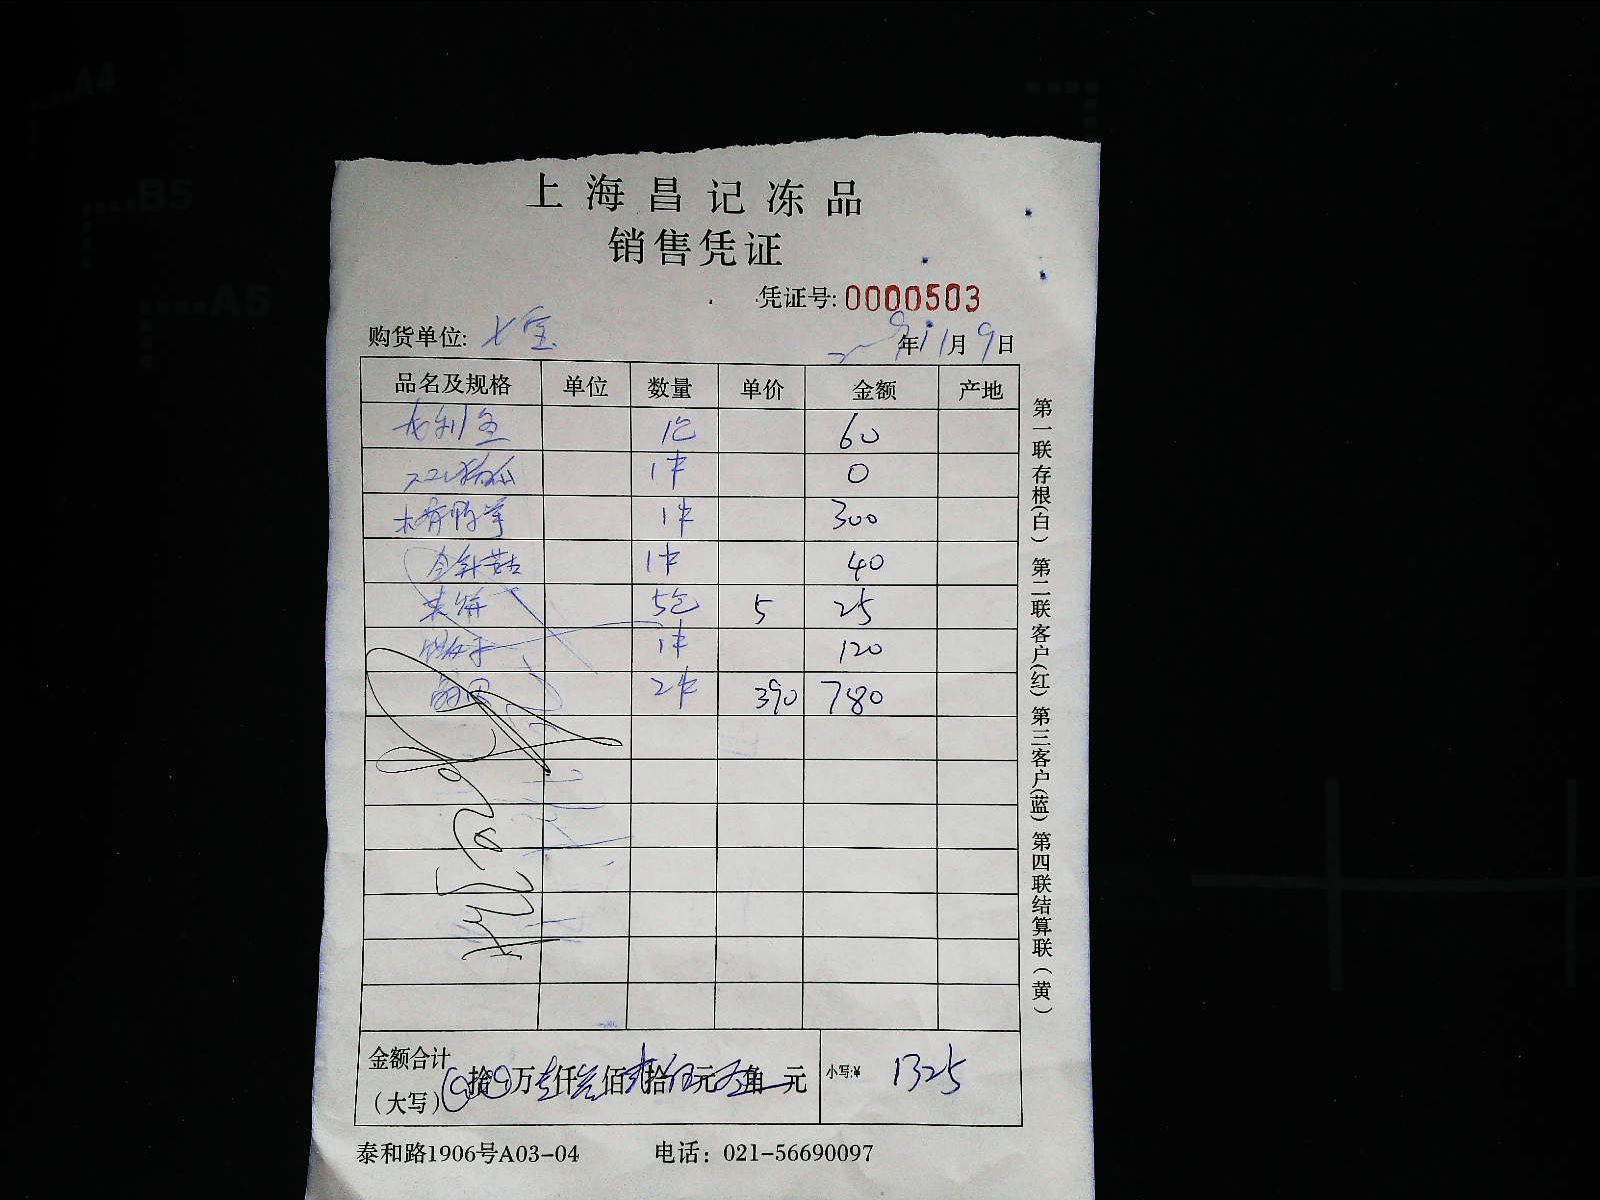 上海昌记冻品
销售凭证
凭证号:0000503
购货单位: 七宝 年11月9日
品名及规格 单位 数量 单价 金额 产地
龙利鱼 1包 60
1件 0
1件 300
金针菇 1件 40
5包 5 25
1件 120
2件 390 780
金额合计
(大写) 拾 万壹仟叁佰贰拾伍元 角 元 小写:¥ 1325
泰和路1906号A03-04 电话：021-56690097
第一联存根(白) 第二联客户(红) 第三客户(蓝) 第四联结算联(黄)
A4
B5
A5